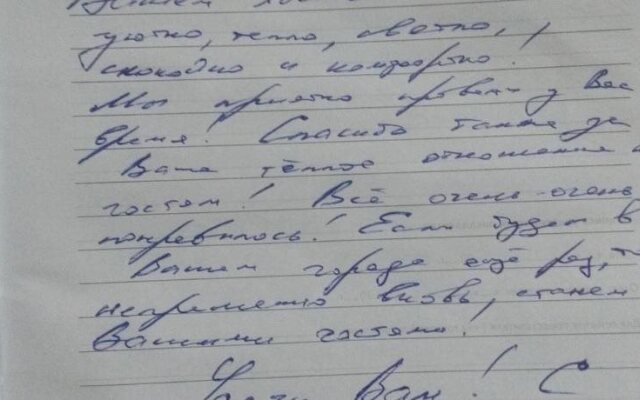 Вашем
уютно, тепло, светло,
спокойно и комфортно!
Мы приятно провели у Вас
время! Спасибо также за
Ваше тёплое отношение к
гостям! Всё очень-очень
понравилось! Если будем в
Вашем городе ещё раз, т
непременно вновь, станем
Вашими гостями!
Удачи Вам! С